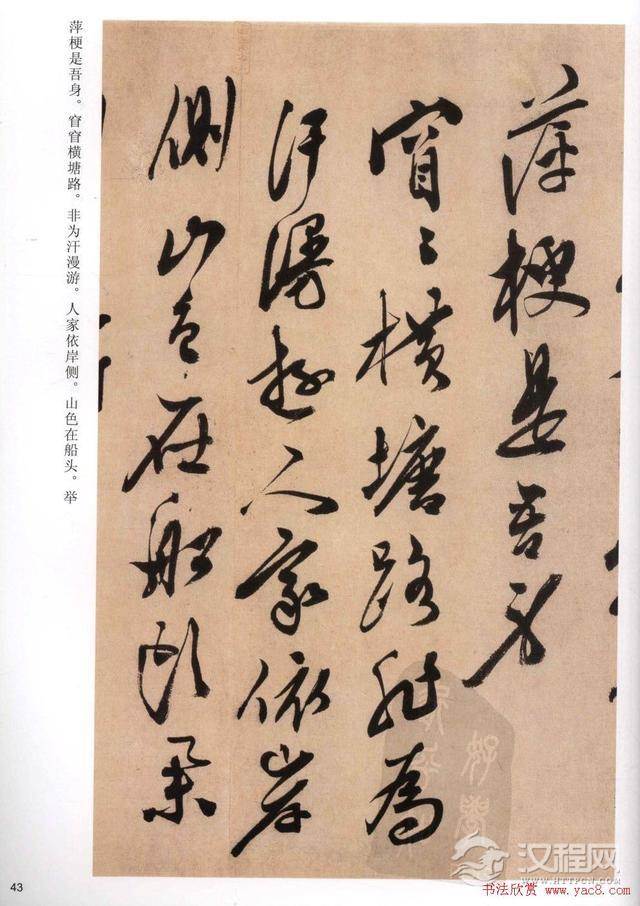 萍梗是吾身
窅〻橫塘路非為
汗漫遊人家依岸
側山色在船頭舉
萍梗是吾身。窅窅横塘路。非为汗漫游。人家依岸侧。山色在船头。举
43
汉程网
WWW.HTTPCN.COM
书法欣赏 www.yac8.com